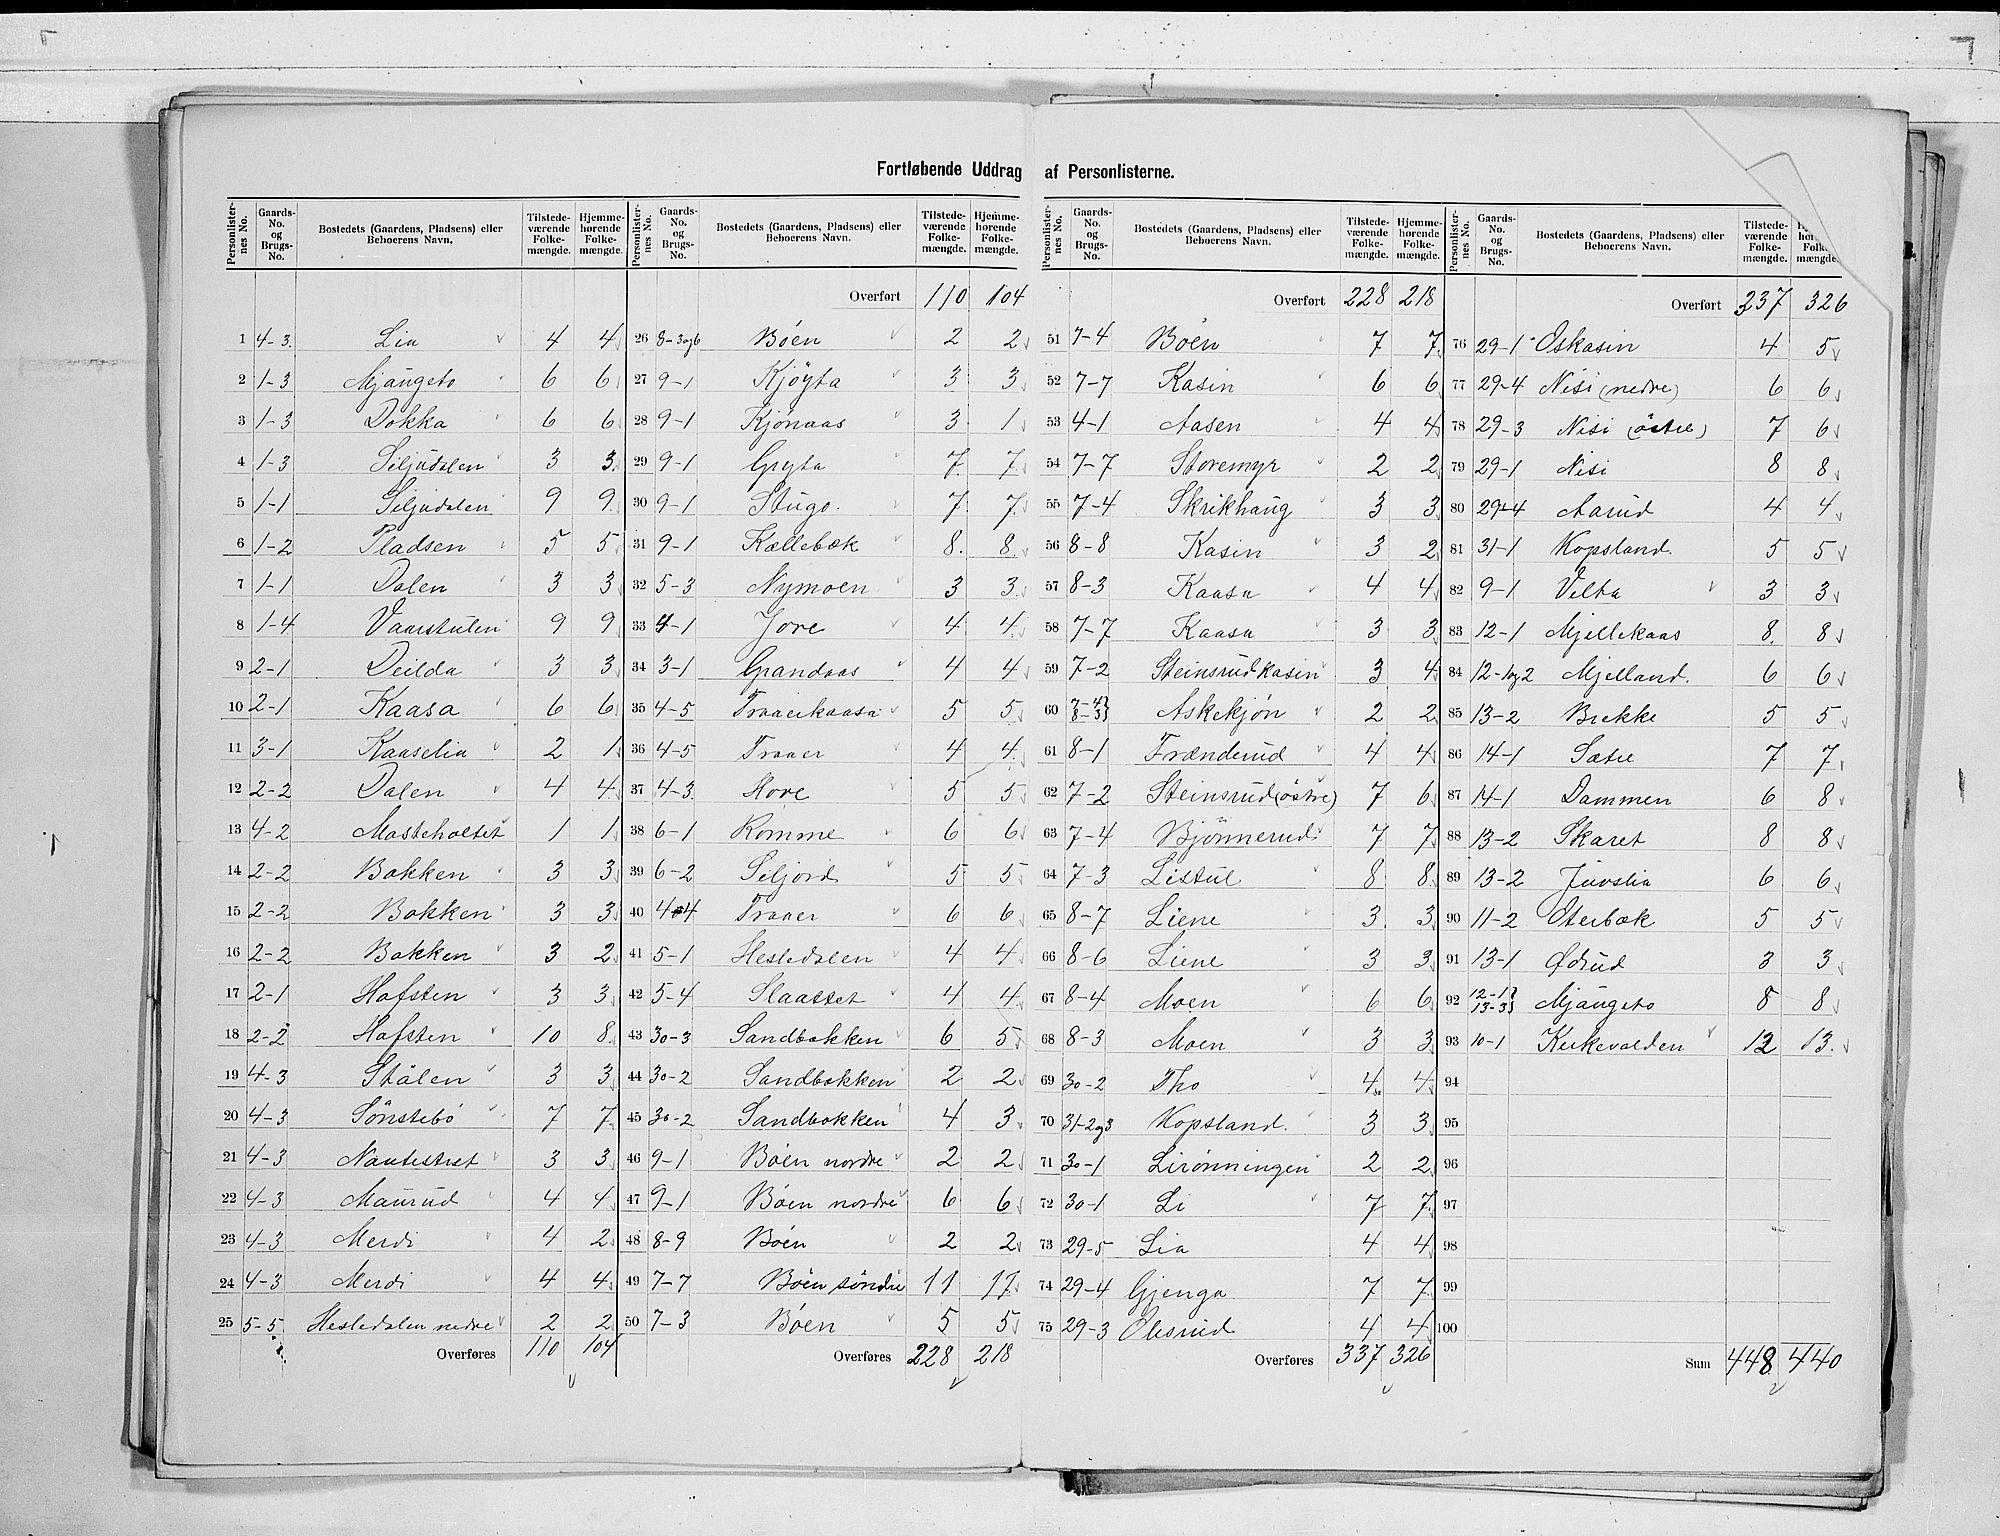 Fortløbende Uddrag af Personlisterne.
Personlister-nes No. | Gaards-No. og Brugs-No. | Bostedets (Gaardens, Pladsens) eller Beboerens Navn. | Tilstede-værende Folke-mængde. | Hjemme-hørende Folke-mængde.
1 4-3. Lia 4 4
2 1-3 Mjaugeto 6 6
3 1-3 Dokka 6 6
4 1-3 Siljudalen 3 3.
5 1-1 Siljudalen 9 9.
6 1-2 Pladsen 5 5
7 1-1 Dalen 3 3
8 1-4 Vaarstulen 9 9
9 2-1 Deilda 3 3
10 2-1 Kaasa 6 6
11 3-1 Kaaselia 2 1
12 2-2 Dalen 4 4
13 4-2 Masteholtet 1 1
14 2-2 Bakken 3 3
15 2-2 Bakken 3 3
16 2-2 Bakken 3 2
17 2-1 Hafsten 3 3
18 2-2 Hafsten 10 8
19 4-3 Stålen 3 3
20 4-3 Sønstebø 7 7
21 4-3 Nautestret 3 3
22 4-3 Maurud 4 4
23 4-3 Merdi 4 2
24 4-3 Merdi 4 4
25 5-5 Hesledalen nedre 2 2
Overføres 110 104
Personlister-nes No. | Gaards-No. og Brugs-No. | Bostedets (Gaardens, Pladsens) eller Beboerens Navn. | Tilstede-værende Folke-mængde. | Hjemme-hørende Folke-mængde.
Overført 110 104
26 8-3og6 Böen 2 2
27 9-1 Kjöyta 3 3
28 9-1 Kjönaas 3 1
29 9-1 Gryta 7. 7
30 9-1 Stugo. 7 7
31 9-1 Kællebæk 8. 8
32 5-3 Nymoen 3 3
33 4-1 Jore 4 4
34 3-1 Grandaas 4 4
35 4-5 Traaerkaasa 5 5
36 4-5 Traaer 4 4
37 4-3. Hove 5 5
38 6-1 Romme 6 6
39 6-2 Seljord 5 5
40 4-4 Traaer 6 6
41 5-1 Hesledalen 4 4
42 5-4 Slaattet 4 4
43 30-3 Sandbakken 6 5
44 30-2 Sandbakken 2 2
45 30-2 Sandbakken 4 3
46 9-1 Böen nordre 2 2
47 9-1 Böen nordre 6 6
48 8-9 Böen 2 2
49 7-7 Böen söndre 11 11
50 7-3 Böen 5 5
Overføres 228 218
Personlister-nes No. | Gaards-No. og Brugs-No. | Bostedets (Gaardens, Pladsens) eller Beboerens Navn. | Tilstede-værende Folke-mængde. | Hjemme-hørende Folke-mængde.
Overført 228 218
51 7-4 Böen 7 7
52 7-7 Kasin 6 6
53 4-1 Aasen 4 4
54 7-7 Storemyr 2 2
55 7-4 Skrikhaug 3 3
56 8-8 Kasin 3 2
57 8-3 Kaasa 4 4
58 7-7 Kaasa 3 3
59 7-2 Steinsrudkasin 3 4
60 7-4 8-3} Askekjön 2 2
61 8-1 Frænderud 4 4
62 7-2 Steinsrud (östre) 7 6
63 7-4 Bjönnerud 7 7
64 7-3 Listul 8 8
65 8-7 Liene 3 3
66 8-6 Liene 3 3
67 8-4 Moen 6 6
68 8-3 Moen 3 3
69 30-2 Tho 4 4
70 31-2og3 Kopsland. 3 3
71 30-1 Lirönningen 2 2
72 30-1 Li 7 7
73 29-5 Lia 4 4
74 29-4 Gjenga 7 7
75 29-3 Olesrud 4 4
Overføres 337 326
Personlister-nes No. | Gaards-No. og Brugs-No. | Bostedets (Gaardens, Pladsens) eller Beboerens Navn. | Tilstede-værende Folke-mængde.
Overført 237 326
76 29-1 Oskasin 4 5
77 29-4 Nisi (nedre) 6 6
78 29-3 Nisi (östre) 7 6
79 29-1 Nisi 8 8
80 29-4 Aarud 4 4
81 31-1 Kopsland. 5 5
82 9-1 Velta 3 3
83 12-1 Mjellekaas 8. 8
84 12-1og2 Mjelland. 6 6
85 13-2 Brekke 5 5
86 14-1 Sætre 7 7
87 14-1 Dammen 6 8
88 13-2 Skaret 8 8
89 13-2 Juvslia 6 6
90 11-2 Oterbæk 5 5
91 13-1 Ødrud 3 3
92 12-1 13-3} Mjaugeto 8 8
93 10-1 Kirkevolden 12 13.
94
95
96
97
98
99
100
Sum 448 440